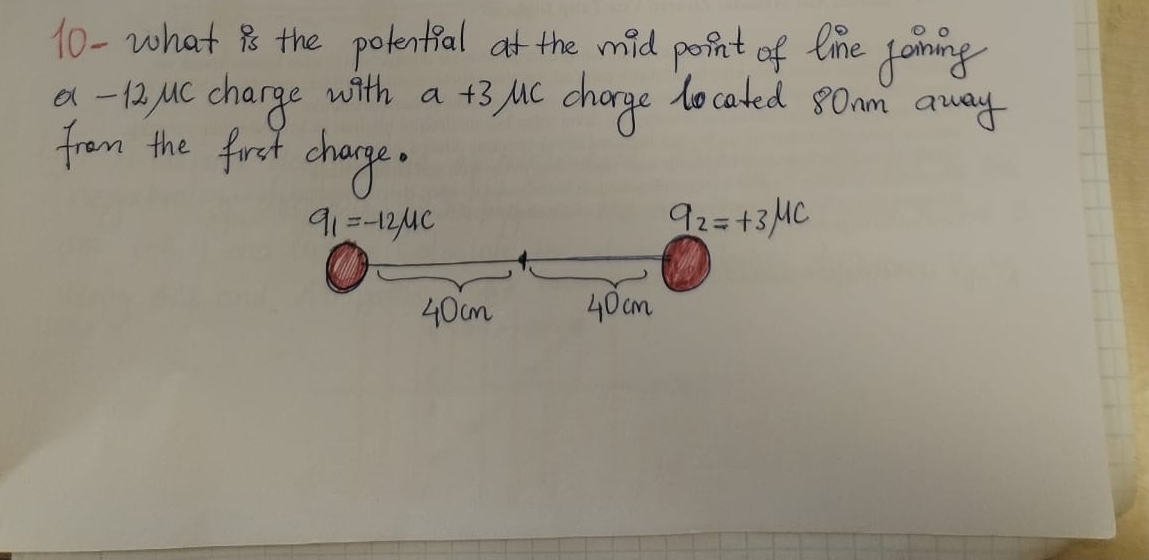 10- what is the potential at the mid point of line joining
a -12 μC charge with a +3 μC charge located 80nm away
from the first charge.
q1 =-12μC q2 = +3μC
40cm 40cm